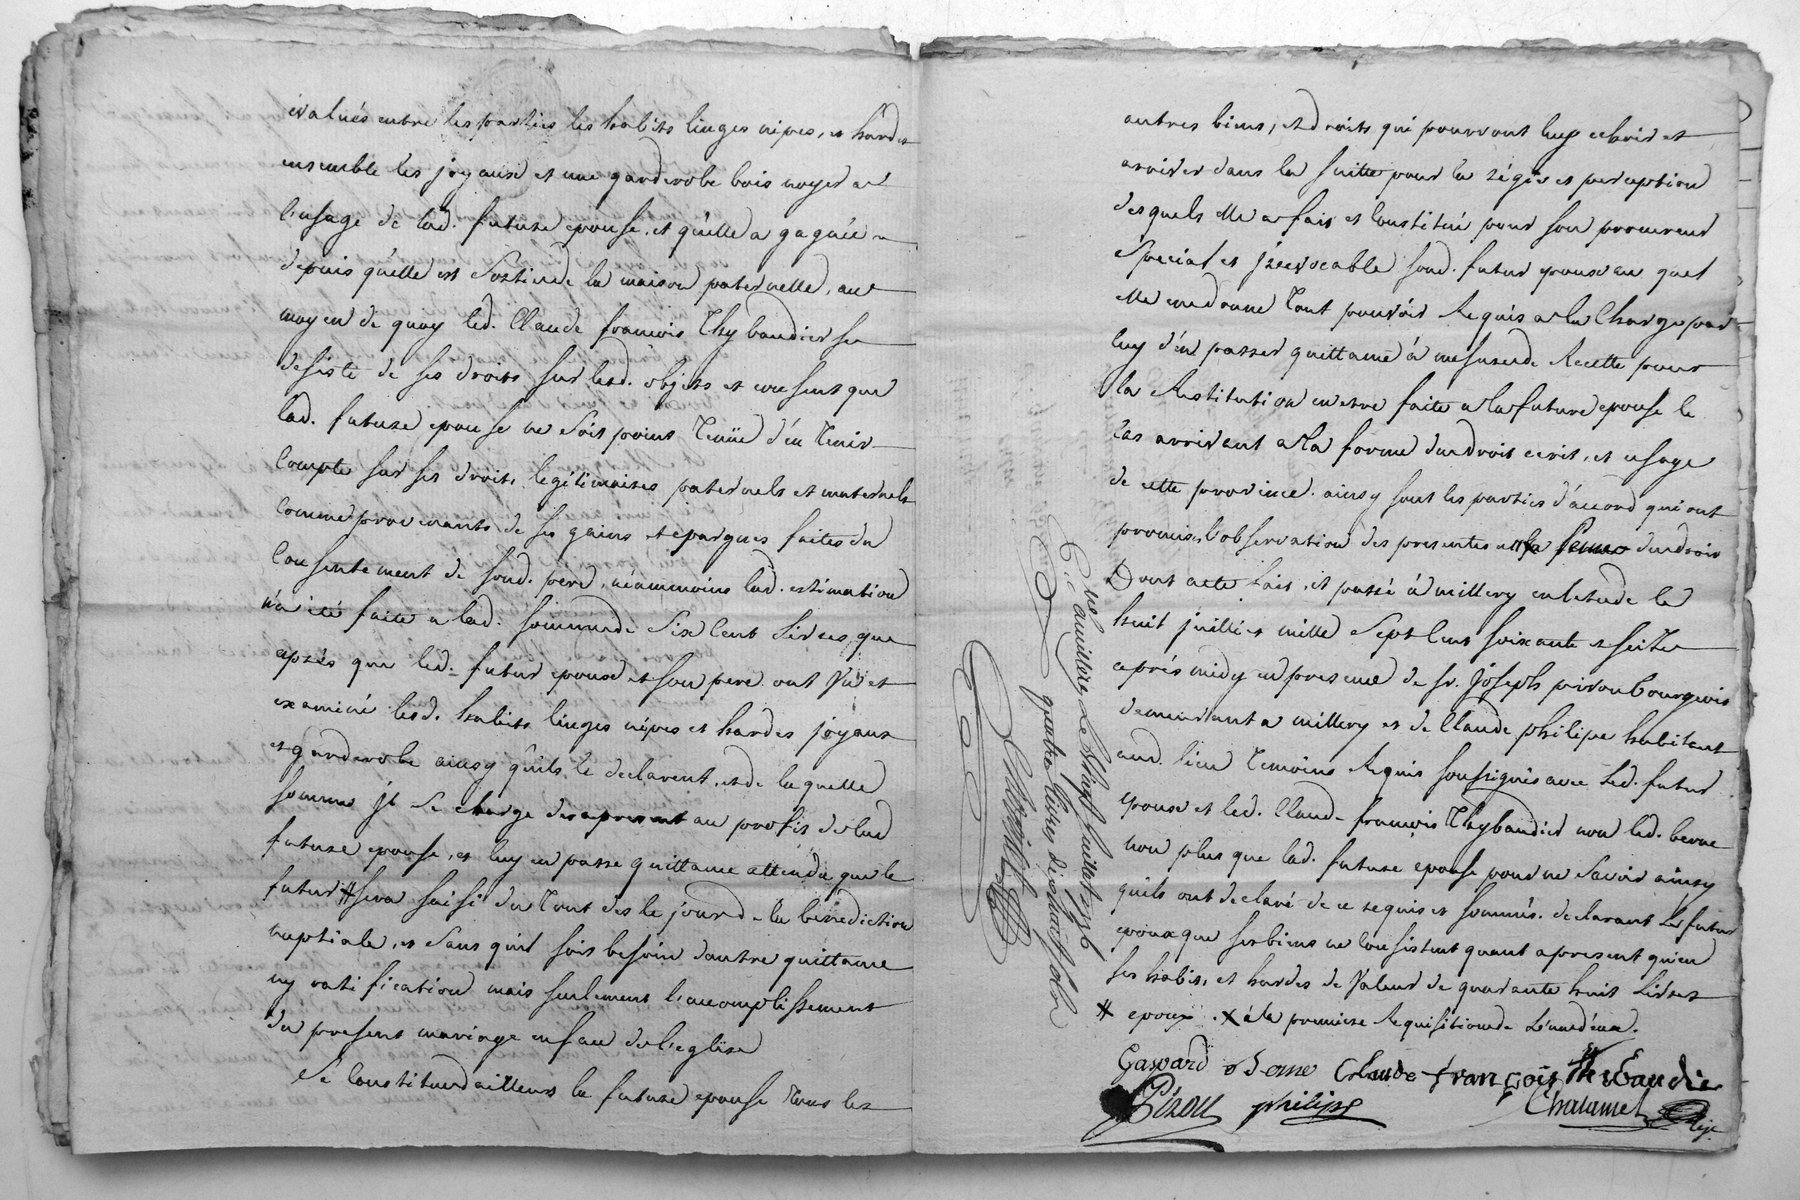 évalués entre les parties les habits linges nipes, et hardes
ensemble les joyaux et une garderobe bois noyer a
l'usage de lad. future epouse, et qu'elle a gagnée
depuis qu'elle est Sortie de la maison paternelle, au
moyen de quoy led. Claude francois Thybaudier se
desiste de ses droits sur lesd. objets et consent que
lad. future epouse ne soit point Tenüe d'en Tenir
Compte sur ses droits légitimaires paternels et maternels
Comme provenants de ses gains et epargnes faites du
Consentement de sond. pere, néanmoins lad. estimation
n'a été faite a lad. somme de Six Cent Livres, que
après que led. futur epoux et son pere ont Vu et
examiné lesd. habits linges nipes et hardes joyaux
et garderobe ainsy qu'ils le declarent, et de laquelle
somme jl Se charge des apresent au profit de lad
future epouse, et luy en passe quittance attendu que le
futur # sera saisi du Tout des le jour de la bénédiction
nuptiale, et Sans qu'il soit besoin d'autre quittance
ny ratification mais seulement l'accomplissement
du present mariage en face de l'eglise
Se Constitue d'ailleurs la future epouse Tous les
autres biens, et droits qui pourront luy echoir et
arriver dans la suitte pour la régie et perception
desquels elle a fait et Constitué pour son procureur
Special et jrrevocable sond. futur epoux au quel
elle en donne Tout pouvoir Requis a la Charge par
luy d'en passer quittance à mesure de Recette pour
la Restitution en etre faite a la future epouse le
Cas arrivant a la forme du droit ecrit, et usage
de cette province. ainsy sont les parties d'accord qui ont
promis l'observation des presentes a # la peine de droit
Dont acte fait, et passé à millery en letude le
huit juillet mille Sept Cent soixante et seize
aprés midy en presence de sr. Joseph pizou Bourgeois
demeurant a millery et de Claude philipe habitant
aud. lieu Temoins Requis soussignés avec Led. futur
epoux et led. Claude francois Thybaudier non led. berne
non plus que lad. future epouse pour ne Savoir ainsy
quils ont declaré de ce requis et sommés. declarant Le futur
epoux que ses biens ne Consistent quant apresent qu'en
ses habits, et hardes de Valeur de quarante huit Livres
# epoux . X à la premiere Requisition de L'un d'eux.
Gaspard berne Claude françois thibaudier
Pizou philipe Chalamel
C.lé a milleri Le Vingt juillet 1776
quatre livres dix huit sols